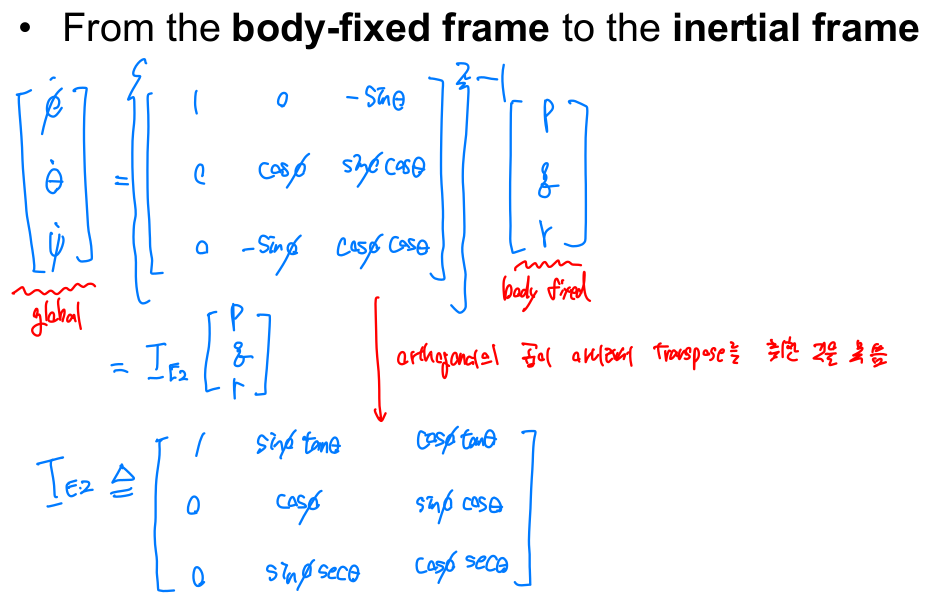 • From the body-fixed frame to the inertial frame
[ϕ̇ θ̇ ψ̇] = { [1 0 -sinθ
0 cosϕ sinϕ cosθ
0 -sinϕ cosϕ cosθ] }⁻¹ [p q r]
global
body fixed
= I_E2 [p q r]
orthogonal의 곱이 아니라서 Transpose를 취한 것을 못씀
I_E2 ≜ [1 sinϕ tanθ cosϕ tanθ
0 cosϕ sinϕ cosθ
0 sinϕ secθ cosϕ secθ]